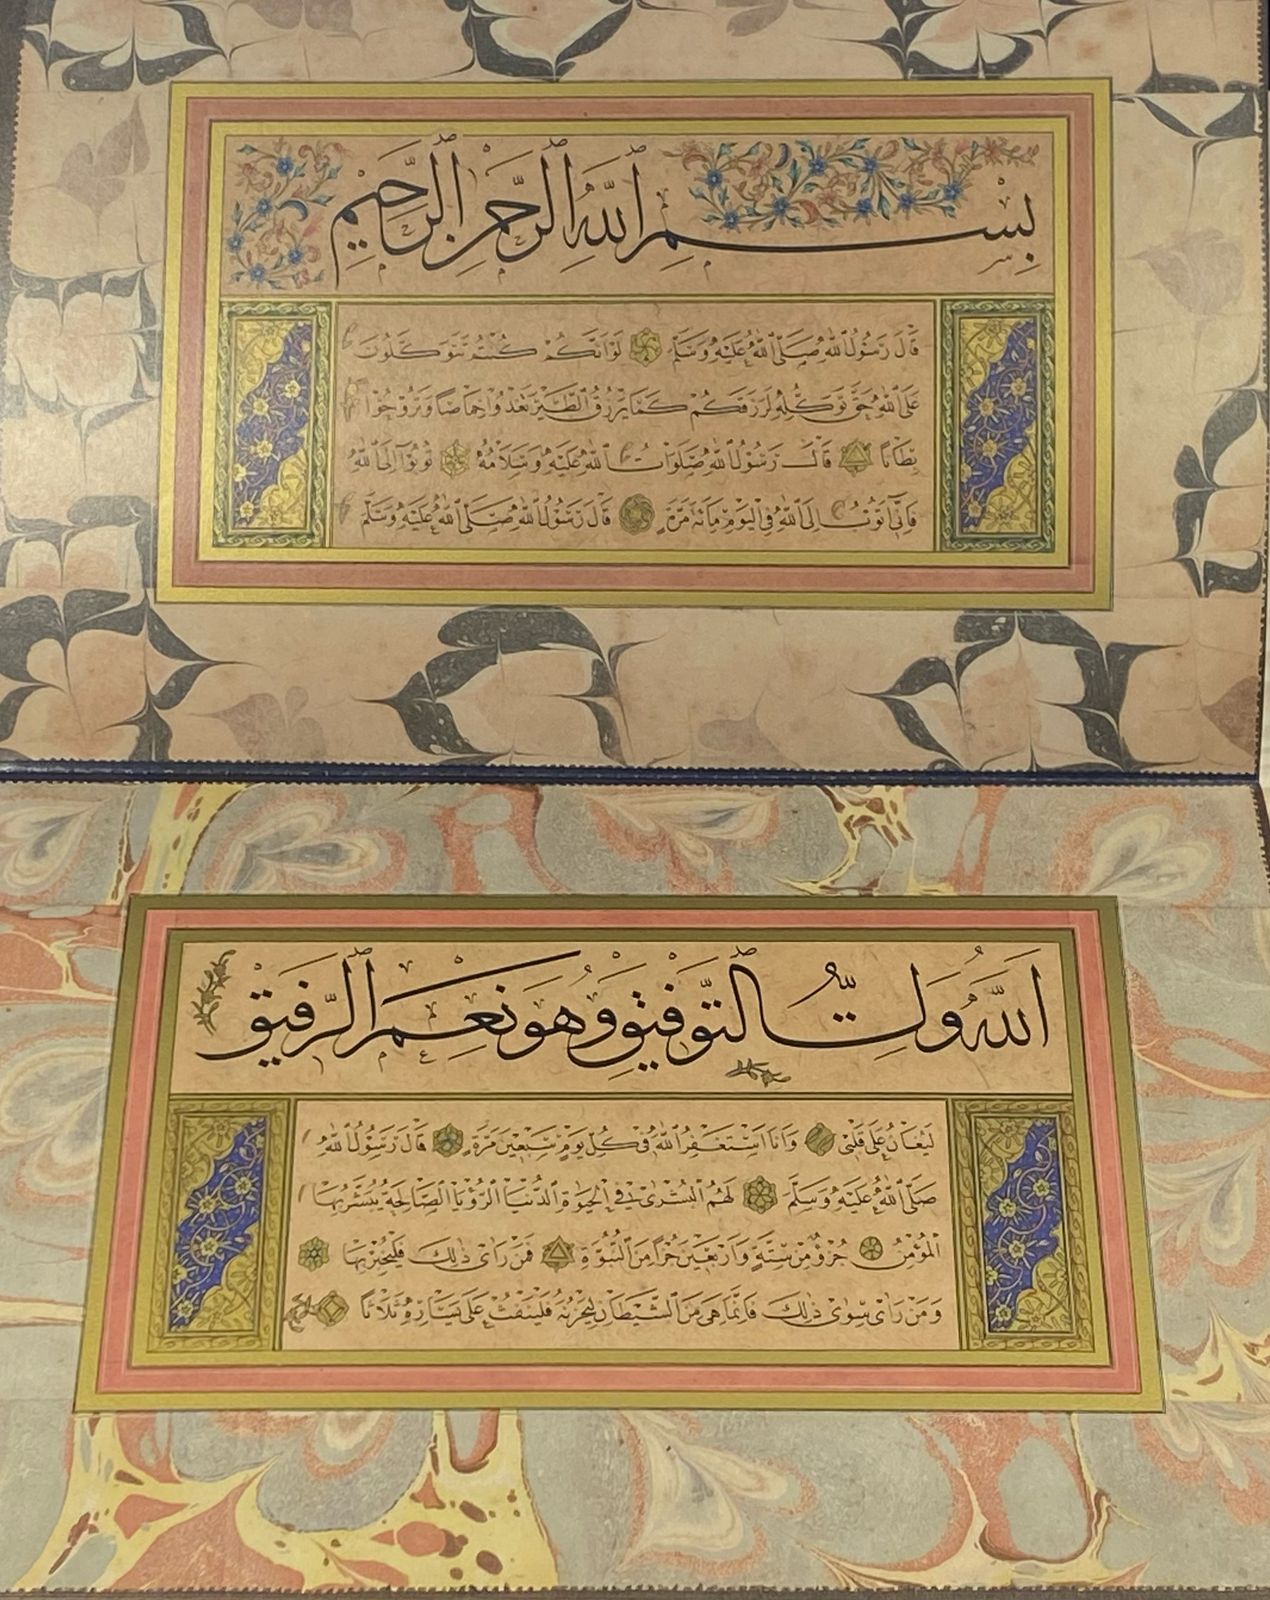 بِسْمِ اللّٰهِ الرَّحْمٰنِ الرَّحِيمِ
قَالَ رَسُولُ اللّٰهِ صَلَّى اللّٰهُ عَلَيْهِ وَسَلَّمَ لَوْ اَنَّكُمْ كُنْتُمْ تَتَوَكَّلُونَ
عَلَى اللّٰهِ حَقَّ تَوَكُّلِهِ لَرَزَقَكُمْ كَمَا يَرْزُقُ الطَّيْرَ تَغْدُوا خِمَاصًا وَتَرُوحُ
بِطَانًا قَالَ رَسُولُ اللّٰهِ صَلَوَاتُ اللّٰهِ عَلَيْهِ وَسَلَامُهُ تُوبُوا اِلَى اللّٰهِ
فَاِنِّى اَتُوبُ اِلَى اللّٰهِ فِى الْيَوْمِ مِائَةَ مَرَّةٍ قَالَ رَسُولُ اللّٰهِ صَلَّى اللّٰهُ عَلَيْهِ وَسَلَّمَ
اَللّٰهُ وَلِىُّ التَّوْفِيقِ وَهُوَ نِعْمَ الرَّفِيقُ
لَيُغَانُ عَلَى قَلْبِى وَاَنَا اَسْتَغْفِرُ اللّٰهَ فِى كُلِّ يَوْمٍ سَبْعِينَ مَرَّةً قَالَ رَسُولُ اللّٰهِ
صَلَّى اللّٰهُ عَلَيْهِ وَسَلَّمَ لَهُمُ الْبُشْرٰى فِى الْحَيٰوةِ الدُّنْيَا الرُّؤْيَا الصَّالِحَةُ يُبَشَّرُ بِهَا
الْمُؤْمِنُ جُزْؤٌ مِنْ سِتَّةٍ وَاَرْبَعِينَ جُزْأً مِنَ النُّبُوَّةِ فَمَنْ رَاٰى ذٰلِكَ فَلْيُخْبِرْ بِهَا
وَمَنْ رَاٰى سِوٰى ذٰلِكَ فَاِنَّمَا هِىَ مِنَ الشَّيْطَانِ لِيُحْزِنَهُ فَلْيَنْفُثْ عَلَى يَسَارِهِ ثَلَاثًا